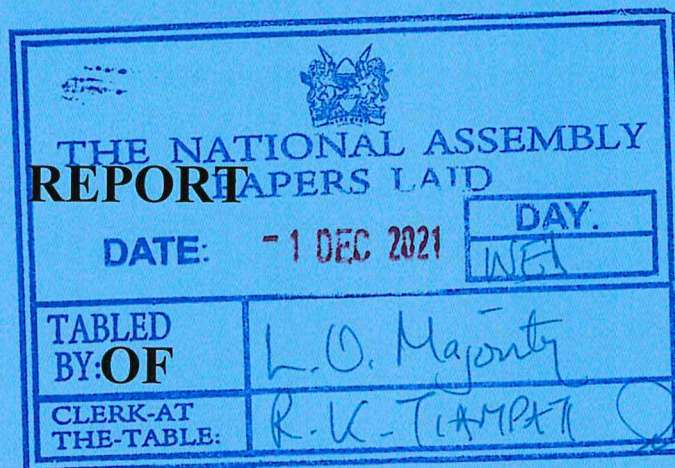 THE NATIONAL ASSEMBLY
REPORT PAPERS LAID
DATE: - 1 DEC 2021 DAY.
WED
TABLED BY: OF L.O. Majority
CLERK-AT THE-TABLE: R.K. TIAMPATI